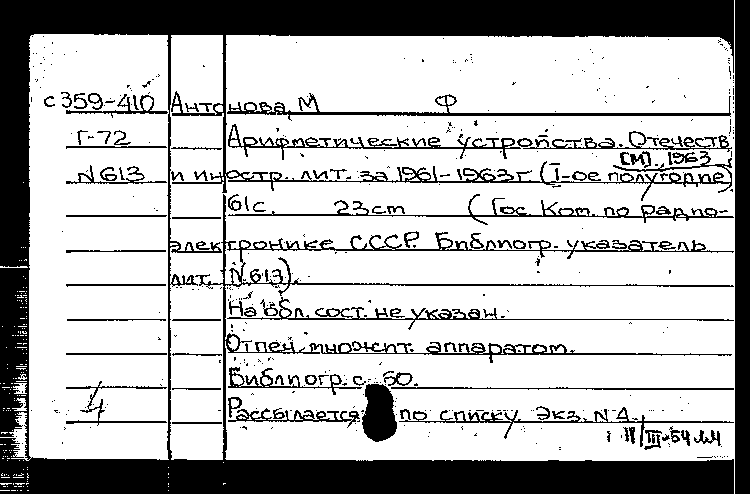 с359-410 Антонова, М Ф
Г-72 Арифметические устройства. Отечеств
[М]., 1963
N613 и иностр. лит. за 1961-1963г (I-ое полугодие)
61с. 23cm (Гос. Ком. по радио-
электронике СССР. Библиогр. указатель
лит. N.613).
На обл. сост. не указан.
Отпеч. множит. аппаратом.
Библиогр. с. 60.
4 Рассылается по списку. Экз. N 4.
III-54